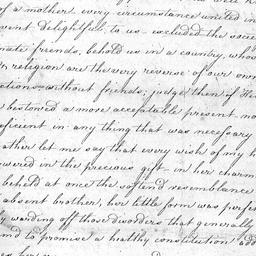 of a mother every circumstance united in
vent delightful to us - excluded the socie
nate friends, behold us in a country, whos
religion are the very reverse of our own
ction - without friends; judge then if He
bestowed a more acceptable present no
oficient in any thing that was necessary
ather let me say that every wish of my h
wered in the precious gift - in her charm
beheld at once the softend resemblance
absent brother; her little form was perfe
by warding off those disorders that generally
and to promise a healthy constitution add